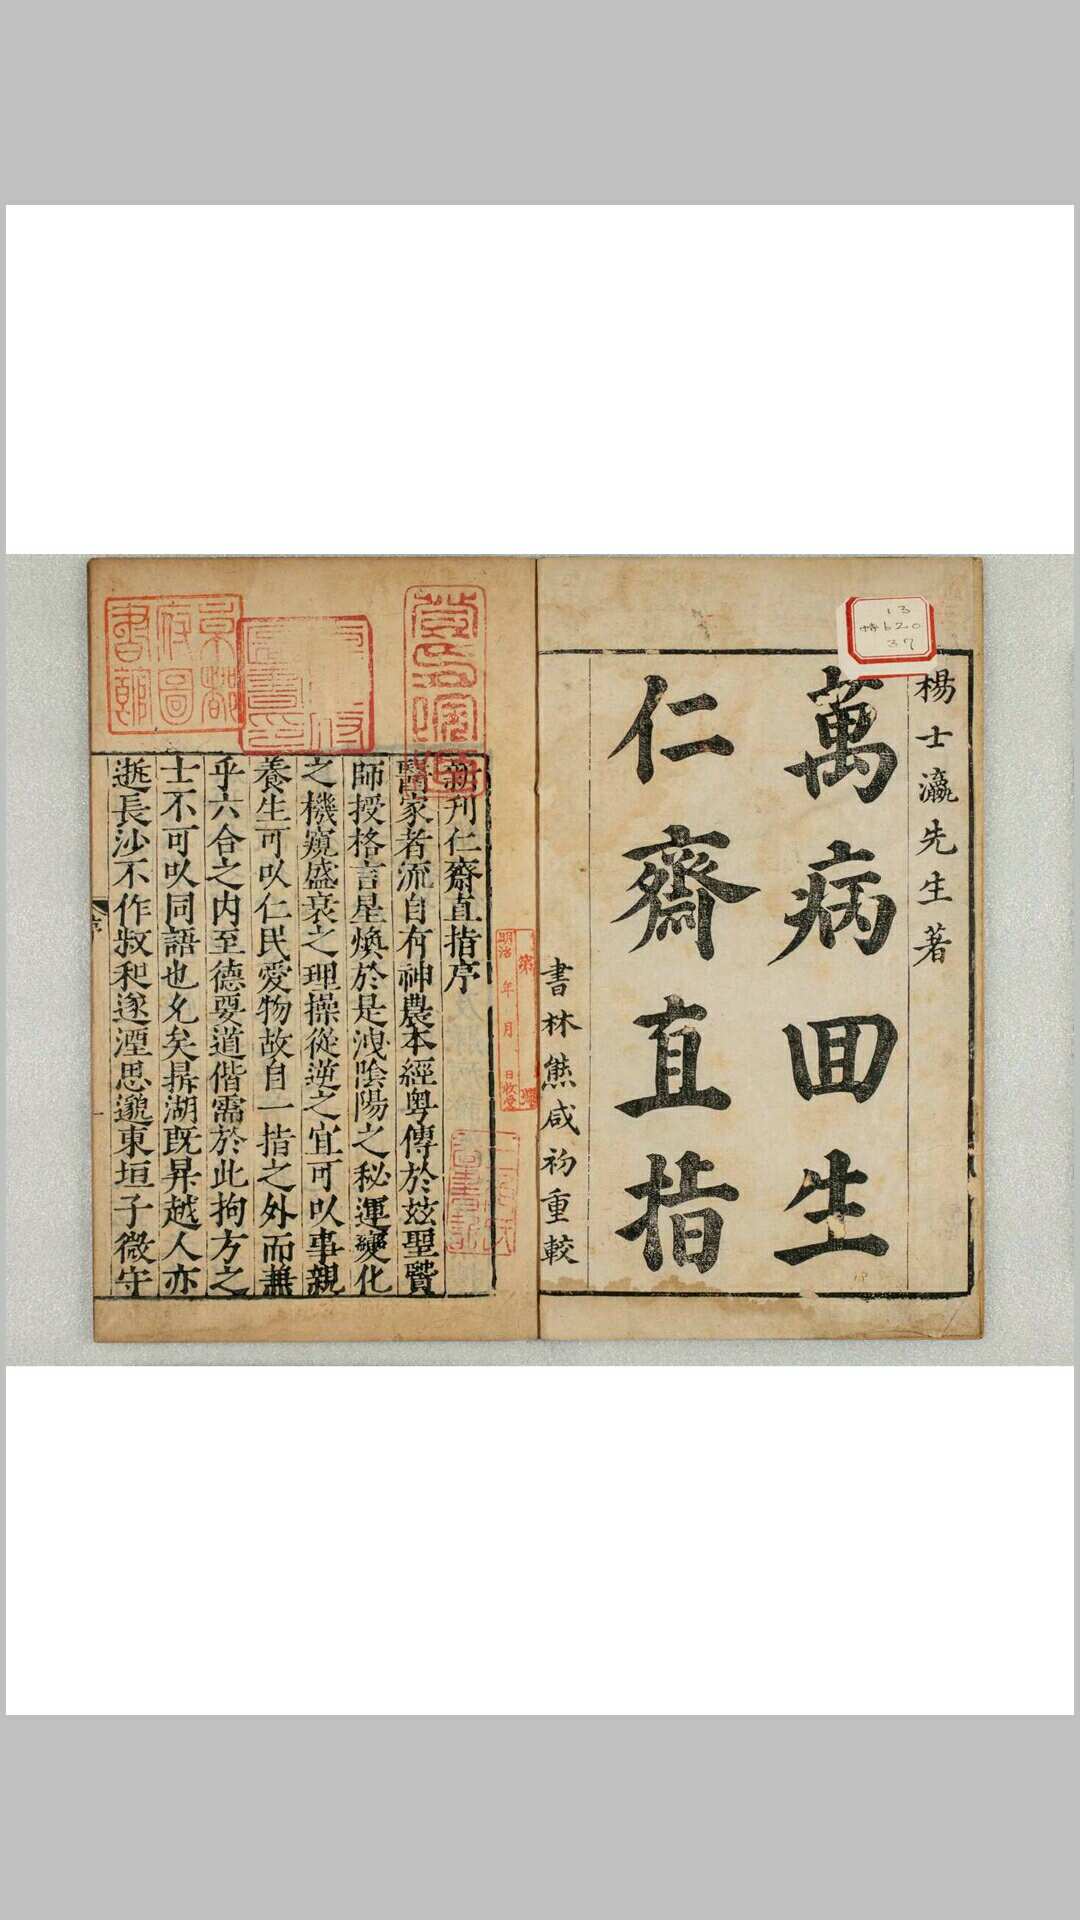 楊士瀛先生著
萬病回生
仁齋直指
書林熊咸初重較
13
特b20
37
新刊仁齋直指序
醫家者流自有神農本經粤傳於玆聖賢
師授格言星煥於是洩陰陽之秘運變化
之機窺盛衰之理操從逆之宜可以事親
養生可以仁民愛物故自一指之外而兼
乎六合之内至德要道偕需於此拘方之
士不可以同語也久矣鼎湖既昇越人亦
逝長沙不作叔和遂湮思邈東垣子微守
序
一
京都府圖書館
明治 年 月 日收受
第 號